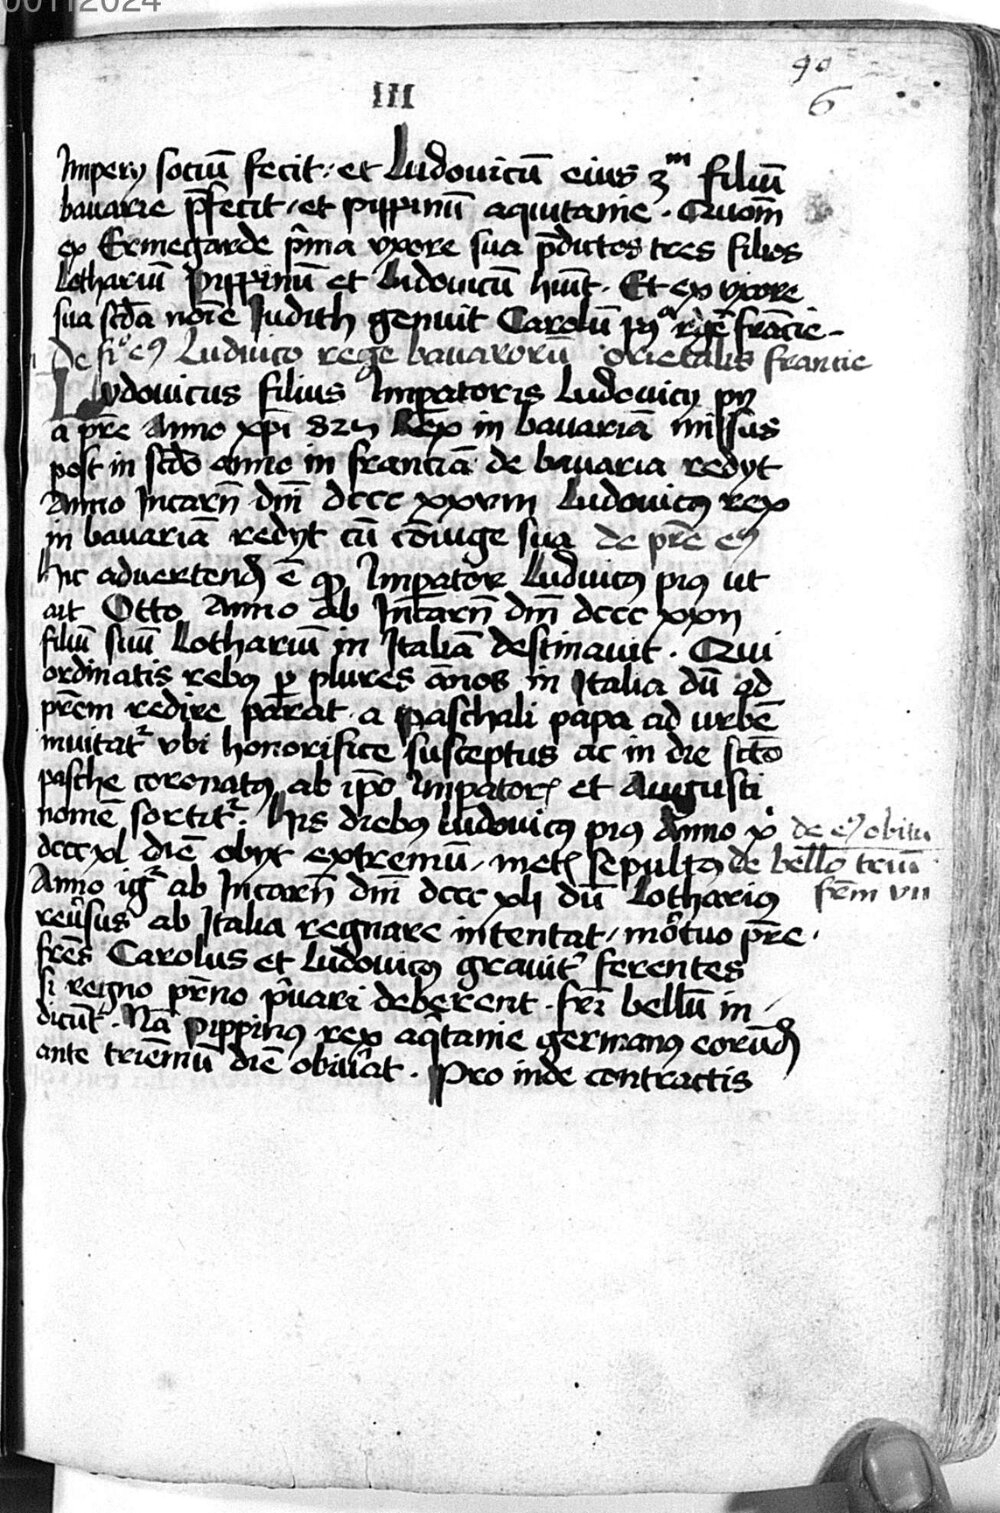 00112024
40
6
III
Imperÿ sociū fecit · et Ludovicū eius 3m filiū
bavarie p̄fecit / et pippinū aquitanie · Quom̄
ex Ermegarde p̄ma uxore sua p̄dictos tres filios
Lothariū Pippinū et Ludovicū hūit · Et ex uxore
sua scd̄a noīe Judith genuit Carolū rege francie
De fi° eꝰ Ludvico rege bavarorū orietalis francie
Ludovicus filius Impatoris Ludovicy pÿ
a pr̄e Anno xp̄i Rex in bavariā missus
post in scd̄o anno in franciā de bavaria redyt
Anno Incarn̄ dn̄i dccc xxviii Ludovicꝰ rex
in bavariā redyt cū cōiuge sua de pr̄e eꝰ
hic advertend̄ ē qꝫ Impator Ludvicꝰ piꝰ ut
ait Otto Anno ab Incarn̄ dn̄i dccc xxii
filiū suū Lothariū in Italiā destinavit · Qui
ordinatis rebꝰ ꝑ plures ānos in Italia dū ad
pr̄em redire parat · a paschali papa ad urbē
invitatr ubi honorifice susceptus ac in die scto
pasche coronatꝰ ab ip̄o Impator et Augusti
nomē sortitr · His diebꝰ Ludovicꝰ piꝰ Anno x° de eꝰ obitu
dccc xl diē obyt extremū / met sepultꝰ de bello triū
Anno igr ab Incarn̄ dn̄i dccc xli dū Lothariꝰ frm̄
reūsus ab Italia regnare intentat / mōtuo pr̄e ·
fr̄es Carolus et Ludovicꝰ gravitr ferentes
si regno pr̄no p̄vari deberent · fr̄i bellū in /
dicūt · Nā pippinꝰ rex aq̄tanie germanꝰ eorūd̄
ante triēniū diē obiuāt · Pro inde contractis